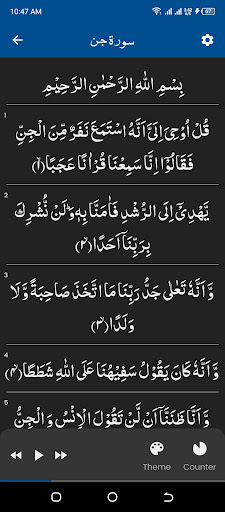 10:47 AM
سورة جن
بِسْمِ اللهِ الرَّحْمٰنِ الرَّحِيْمِ
1
قُلْ اُوْحِيَ اِلَيَّ اَنَّهُ اسْتَمَعَ نَفَرٌ مِّنَ الْجِنِّ
فَقَالُوْٓا اِنَّا سَمِعْنَا قُرْاٰنًا عَجَبًا ﴿۱﴾
2
يَّهْدِيْٓ اِلَى الرُّشْدِ فَاٰمَنَّا بِهٖ ؕ وَلَنْ نُّشْرِكَ
بِرَبِّنَآ اَحَدًا ﴿۲﴾
3
وَّ اَنَّهٗ تَعٰلٰى جَدُّ رَبِّنَا مَا اتَّخَذَ صَاحِبَةً وَّ لَا
وَلَدًا ﴿۳﴾
4
وَّ اَنَّهٗ كَانَ يَقُوْلُ سَفِيْهُنَا عَلَى اللهِ شَطَطًا ﴿۴﴾
5
وَّ اَنَّا ظَنَنَّآ اَنْ لَّنْ تَقُوْلَ الْاِنْسُ وَ الْجِنُّ
Theme
Counter